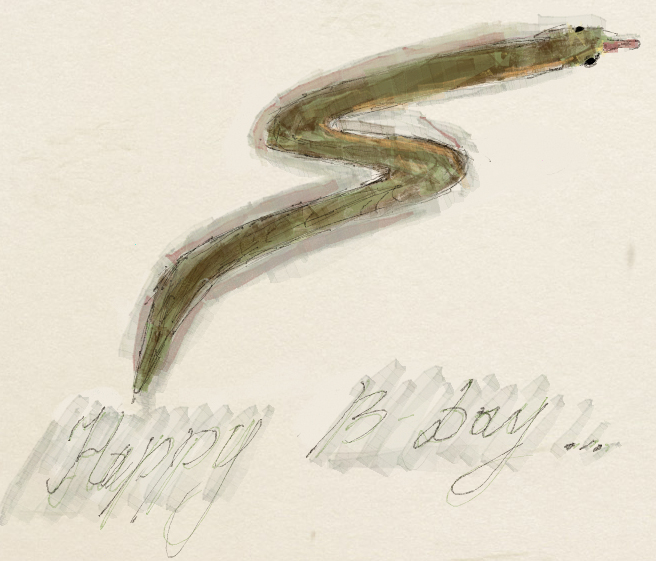 Happy B-day ....